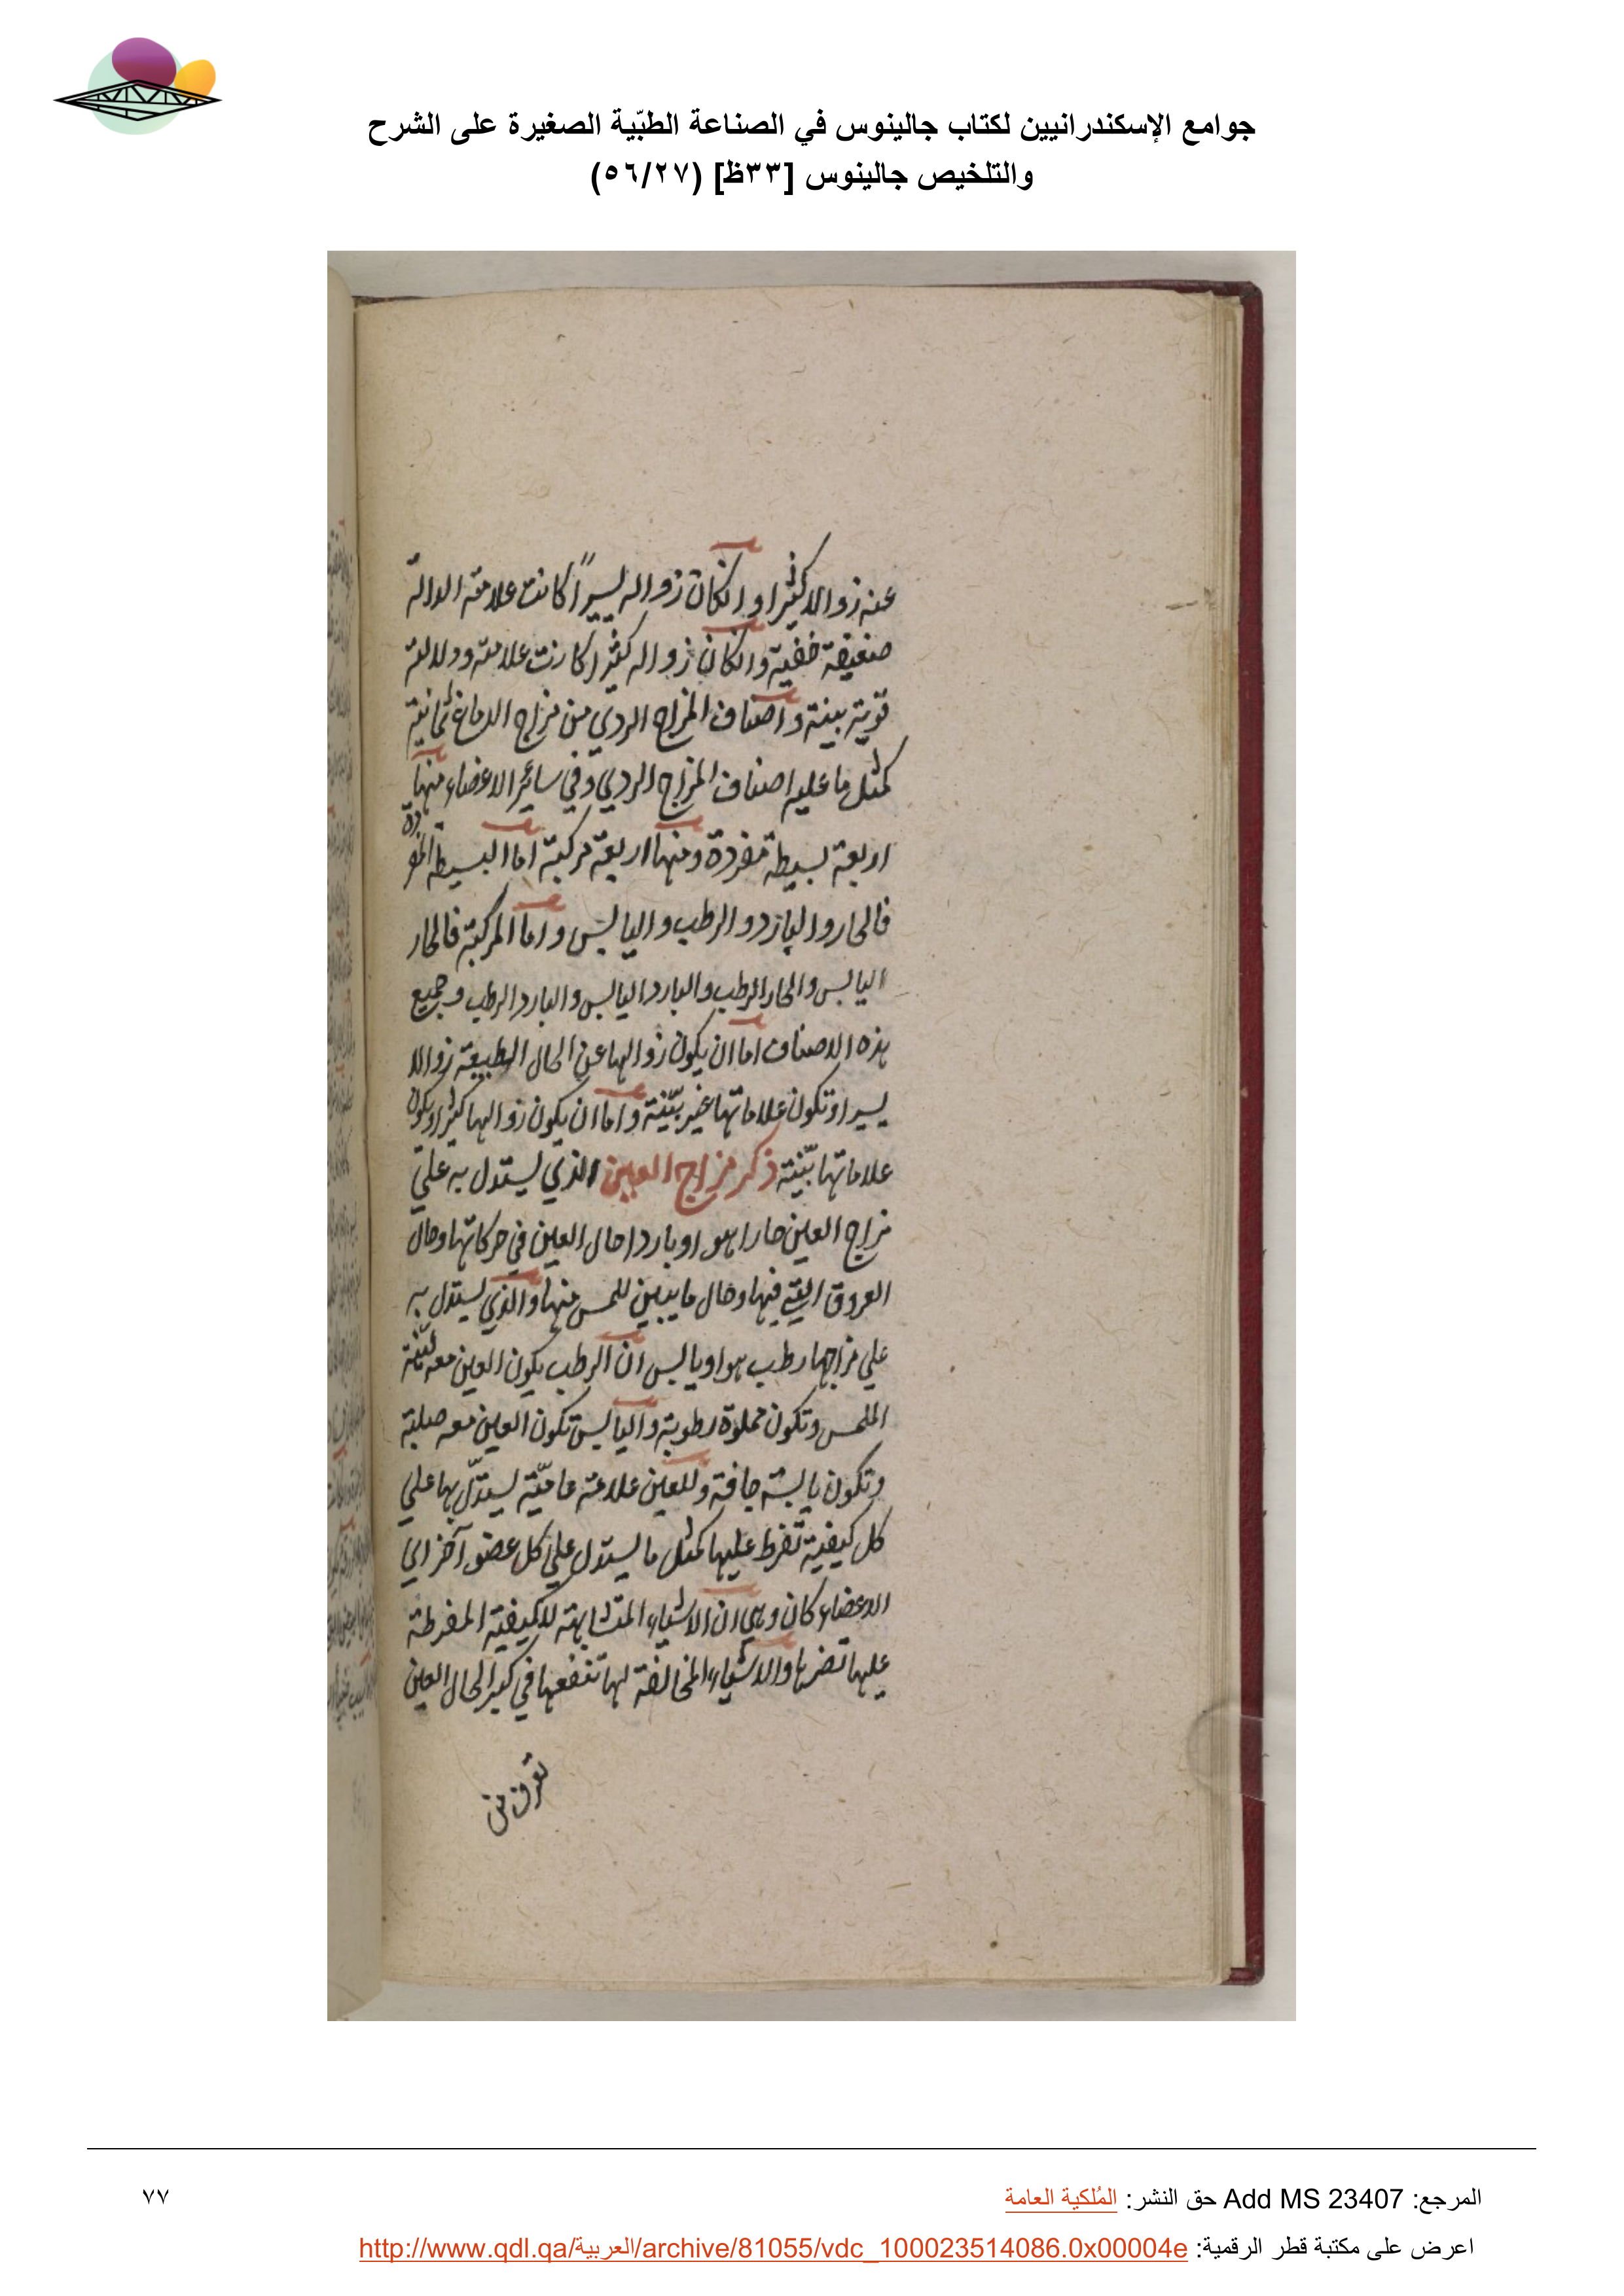 جوامع الإسكندرانيين لكتاب جالينوس في الصناعة الطبّية الصغيرة على الشرح
والتلخيص جالينوس [٣٣ظ] (٥٦/٢٧)
عنه زوالا كثيرا و انكان زواله يسيراً كانت علامته الدالة
ضعيفة خفية وانكان زواله كثيرا كانت علامته ودلالته
قوية بينة و اصناف المزاج الردي من مزاج الدماغ ثمانية
كمثل ما عليه اصناف المزاج الردي وفي سائر الاعضاء منها
اربعة بسيطة مفردة ومنها اربعة مركبة اما البسيطة المفردة
فالحار والبارد و الرطب و اليابس و اما المركبة فالحار
اليابس والحار الرطب والبارد اليابس والبارد الرطب وجميع
هذه الاصناف اما ان يكون زوالها عن الحال الطبيعة زوالا
يسيرا وتكون علاماتها غير بيّنة و اما ان يكون زوالها كثيرا ويكون
علاماتها بيّنة ذكر مزاج العين الذي يستدل به علي
مزاج العين حارا هو او باردا حال العين في حركاتها وحال
العروق التي فيها وحال ما يبين للمس منها والذي يستدل به
علي مزاجها رطب هو او يابس ان الرطب يكون العين معه ليّنة
الملمس وتكون مملوة رطوبة و اليابس تكون العين معه صلبة
وتكون يابسة جافة وللعين علامة عاميّة يستدلّ بها علي
كل كيفية تفرط عليها كمثل ما يستدل علي كل عضو آخر اي
الاعضاء كان وهي ان الاشياء المتشابهة للكيفية المفرطة
عليها تضرها والاشياء المخالفة لها تنفعها في كبر الحال العين
تعرف من
المرجع: Add MS 23407 حق النشر: المُلكية العامة
٧٧
اعرض على مكتبة قطر الرقمية: http://www.qdl.qa/العربية/archive/81055/vdc_100023514086.0x00004e